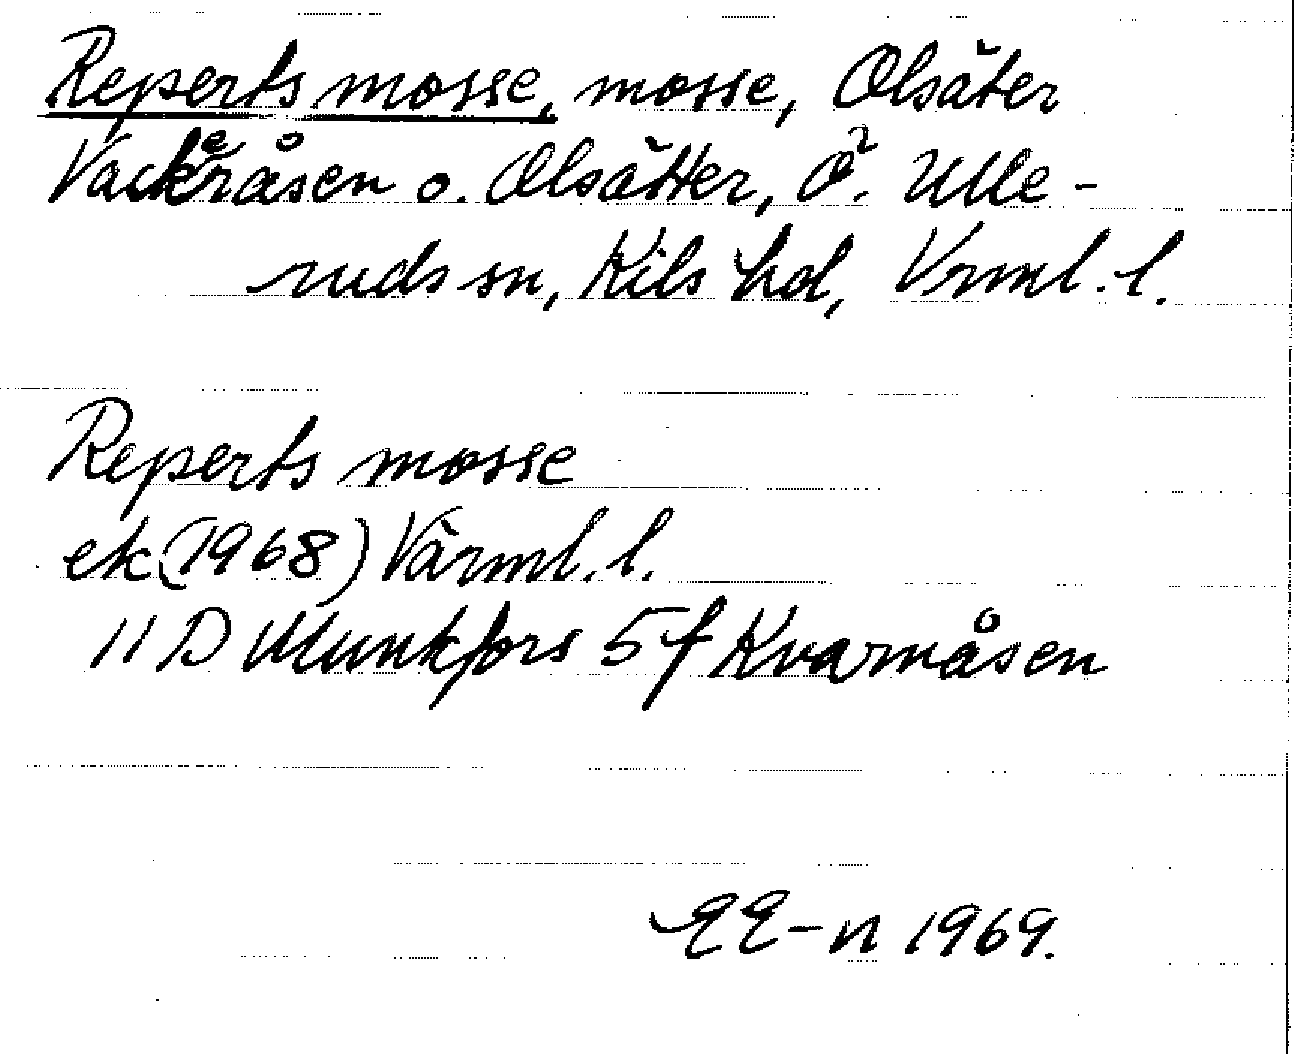 Reperts mosse, mosse, Olsäter
Vackeråsen o. Olsätter, Ö. Ulle-
ruds sn, Kils hd, Vrml. l.
Reperts mosse
ek (1968) Värml. l.
11 D Munkfors 5 f Kvarnåsen
EE-n 1969.